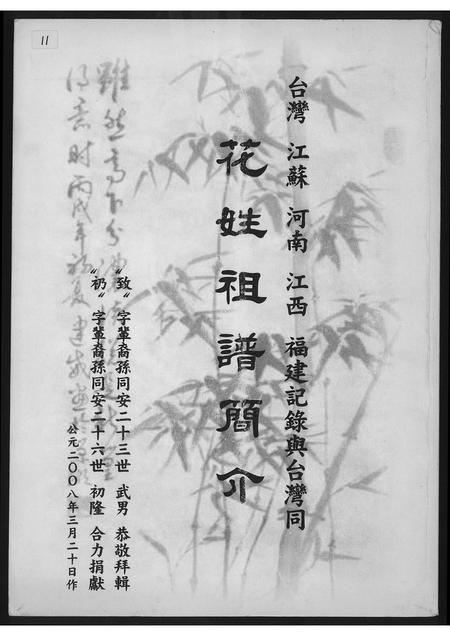 11
台灣 江蘇 河南 江西 福建記錄與台灣同
花姓祖譜簡介
“致”字輩裔孫同安二十三世 武男 恭敬拜輯
“礽”字輩裔孫同安二十六世 初隆 合力捐獻
公元二〇〇八年三月二十日作
雖然高下分
得意时丙戌年初夏建